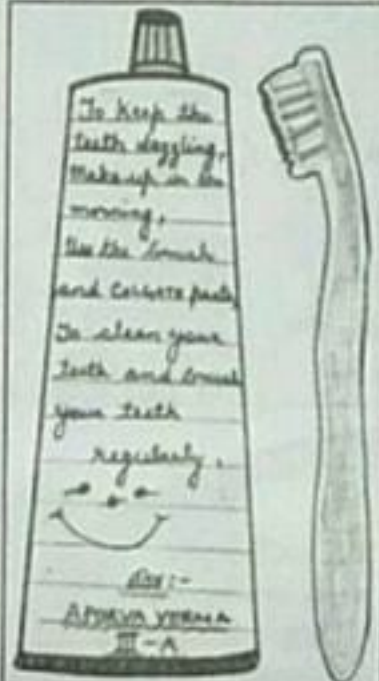 To keep the
teeth dazzling,
Wake up in the
morning,
Use the brush
and COLGATE paste,
To clean your
teeth and brush
your teeth
regularly.
By:-
APORVA VERMA
III-A